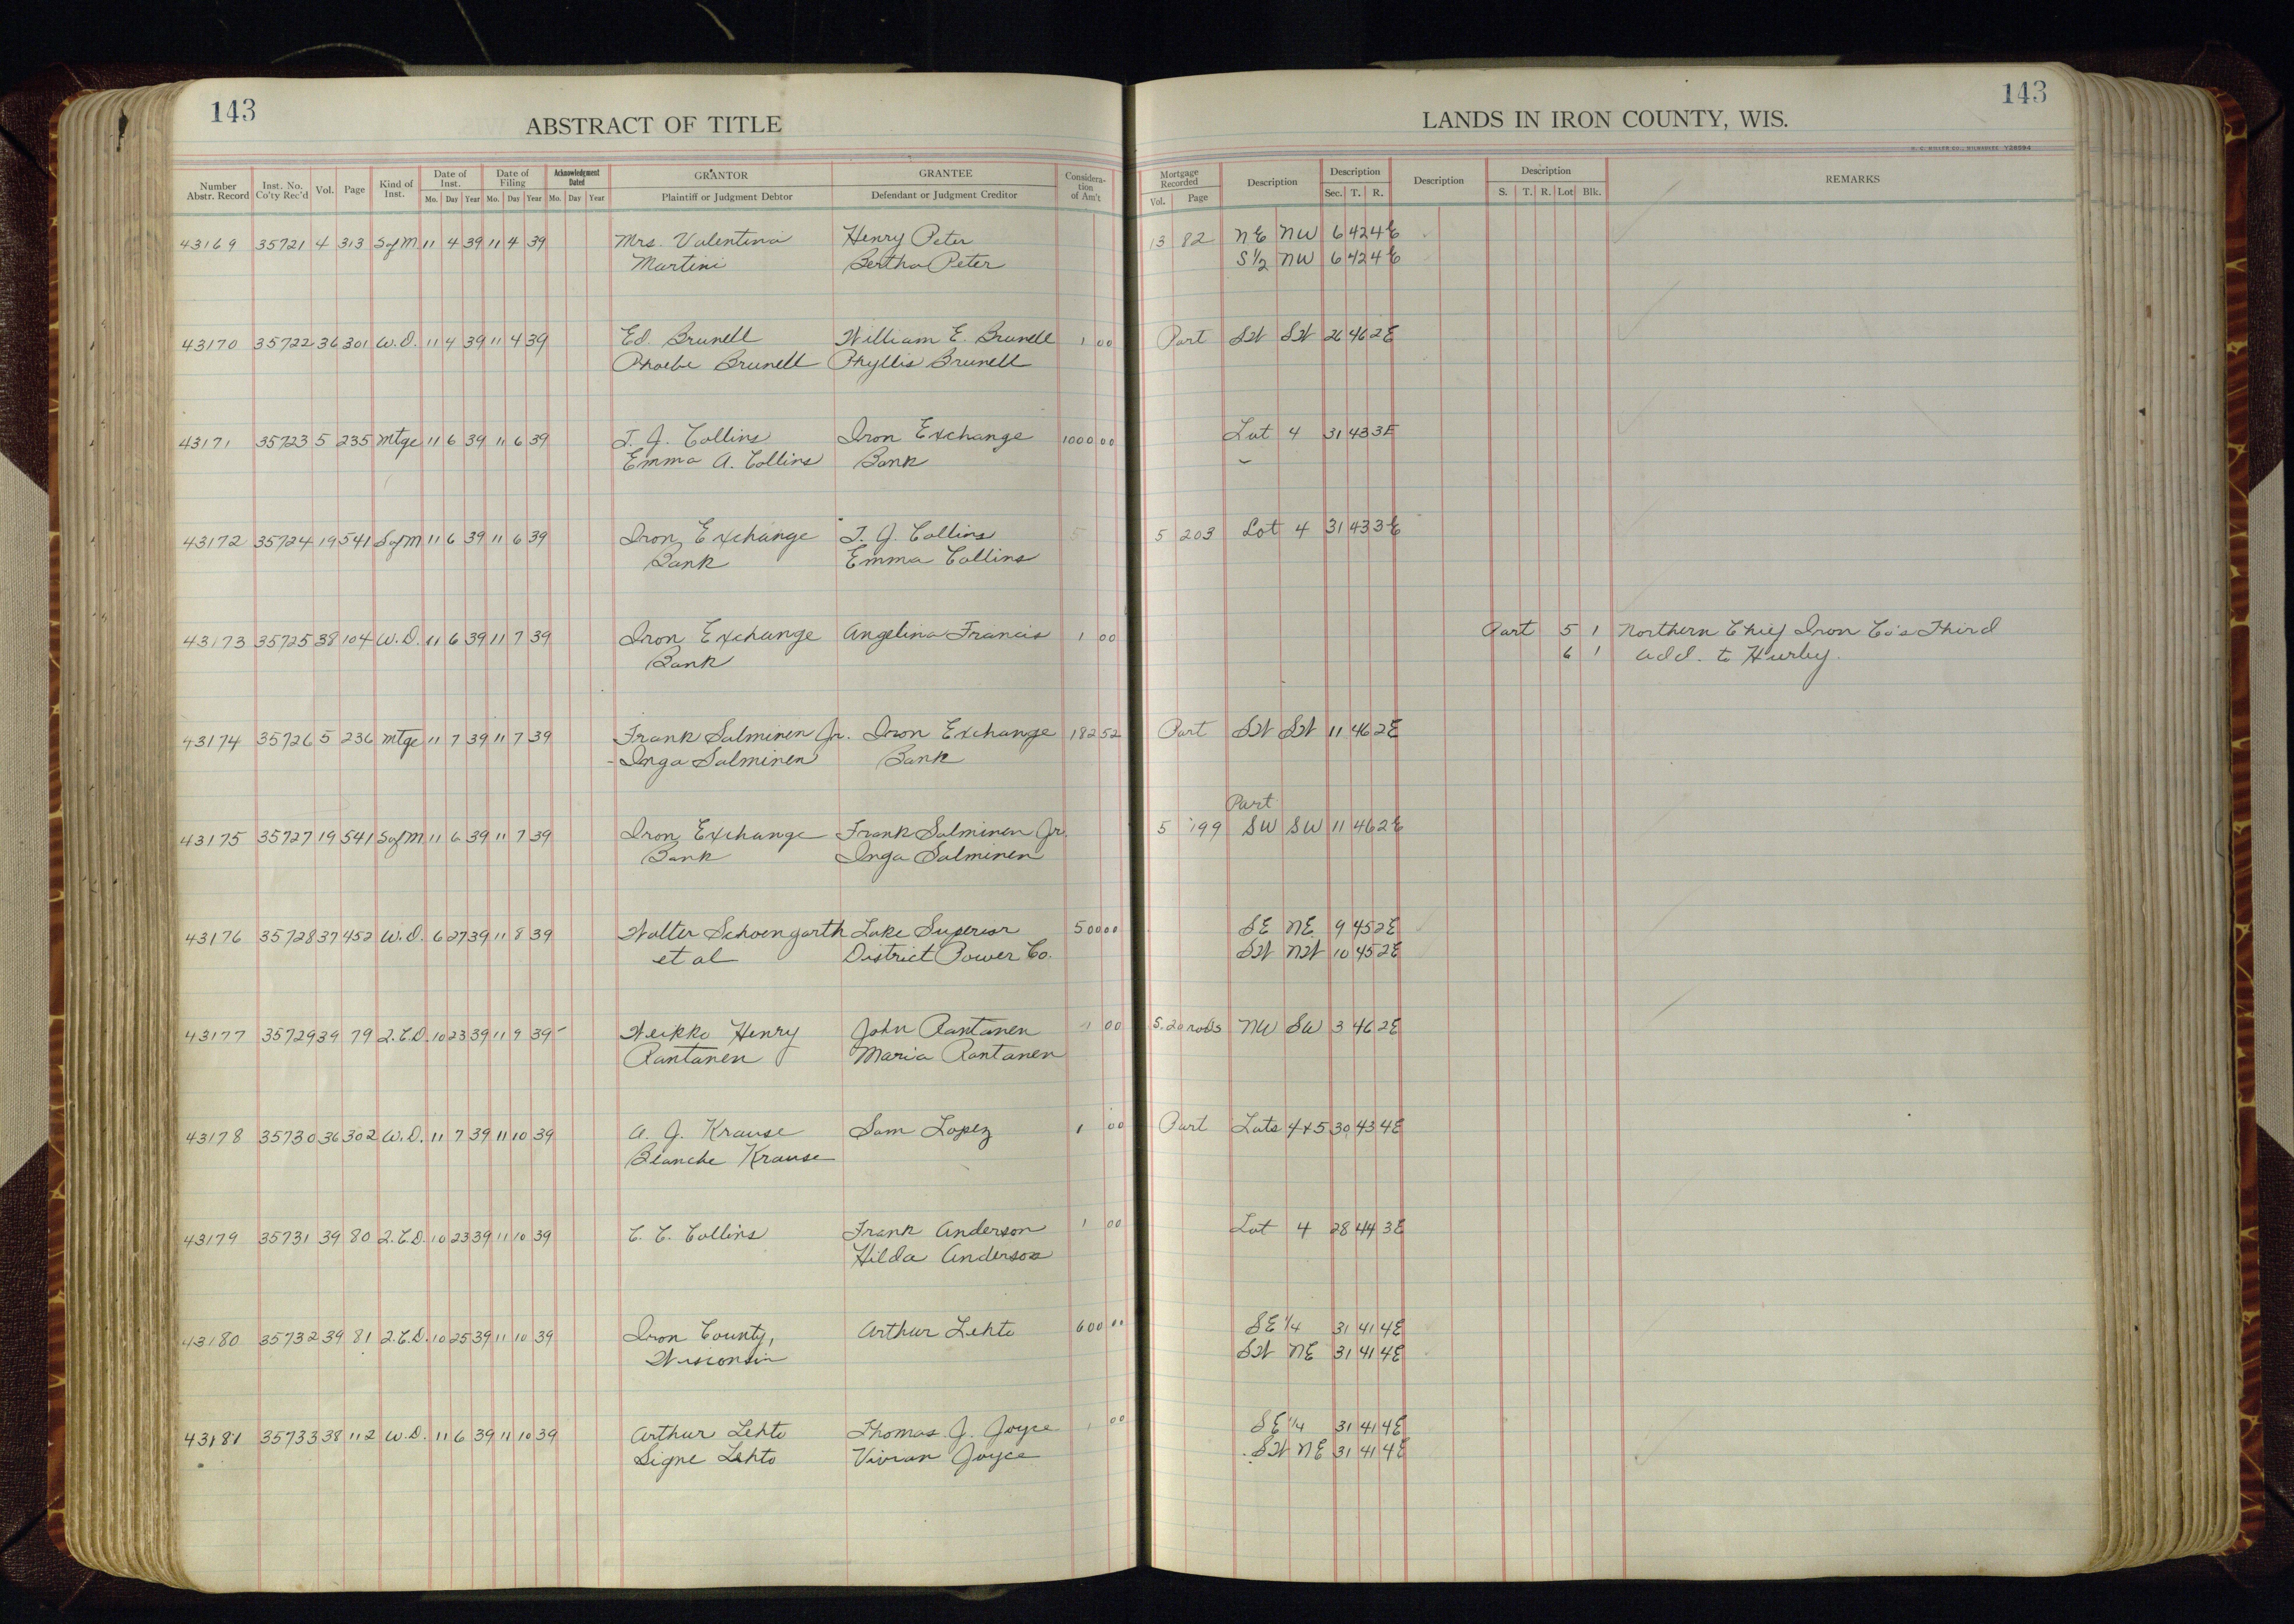 143
143
ABSTRACT OF TITLE
LANDS IN IRON COUNTY, WIS.
H. C. MILLER CO., MILWAUKEE Y28594
Number Abstr. Record Inst. No. Co'ty Rec'd Vol. Page Kind of Inst. Date of Inst. Mo. Day Year Date of Filing Mo. Day Year Acknowledgment Dated Mo. Day Year GRANTOR Plaintiff or Judgment Debtor GRANTEE Defendant or Judgment Creditor Considera-tion of Am't Mortgage Recorded Vol. Page Description Description Sec. T. R. Description Description S. T. R. Lot Blk. REMARKS
43169 35721 4 313 SofM 11 4 39 11 4 39 Mrs. Valentina Henry Peter 13 82 NE NW 6 42 4E
Martini Bertha Peter S1/2 NW 6 42 4E
43170 35722 36 301 W.D. 11 4 39 11 4 39 Ed. Brunell William E. Brunell 1 00 Part SW SW 26 46 2E
Phoebe Brunell Phyllis Brunell
43171 35723 5 235 Mtge 11 6 39 11 6 39 T. J. Collins Iron Exchange 1000 00 Lot 4 31 43 3E
Emma A. Collins Bank
43172 35724 19 541 SofM 11 6 39 11 6 39 Iron Exchange T. J. Collins 5 203 Lot 4 31 43 3E
Bank Emma Collins
43173 35725 38 104 W.D. 11 6 39 11 7 39 Iron Exchange Angelina Francis 1 00 Part 5 1 Northern Chief Iron Co's Third
Bank 6 1 Add. to Hurley.
43174 35726 5 236 Mtge 11 7 39 11 7 39 Frank Salminen Jr. Iron Exchange 182 52 Part SW SW 11 46 2E
Inga Salminen Bank
Part
43175 35727 19 541 SofM 11 6 39 11 7 39 Iron Exchange Frank Salminen Jr. 5 199 SW SW 11 46 2E
Bank Inga Salminen
43176 35728 37 452 W.D. 6 27 39 11 8 39 Walter Schoengarth Lake Superior 500 00 SE NE 9 45 2E
et al District Power Co. SW NW 10 45 2E
43177 35729 39 79 2.C.D. 10 23 39 11 9 39 Weikko Henry John Rantanen 1 00 S. 20 rods NW SW 3 46 2E
Rantanen Maria Rantanen
43178 35730 36 302 W.D. 11 7 39 11 10 39 A. J. Krause Sam Lopez 1 00 Part Lots 4+5 30 43 4E
Blanche Krause
43179 35731 39 80 2.C.D. 10 23 39 11 10 39 C. C. Collins Frank Anderson 1 00 Lot 4 28 44 3E
Hilda Anderson
43180 35732 39 81 2.C.D. 10 25 39 11 10 39 Iron County, Arthur Lehto 600 00 SE 1/4 31 41 4E
Wisconsin SW NE 31 41 4E
43181 35733 38 112 W.D. 11 6 39 11 10 39 Arthur Lehto Thomas J. Joyce 1 00 SE 1/4 31 41 4E
Signe Lehto Vivian Joyce SW NE 31 41 4E